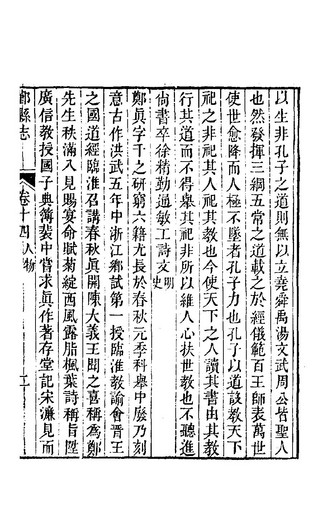 以生非孔子之道則無以立堯舜禹湯文武周公皆聖人
也然發揮三綱五常之道載之於經儀範百王師表萬世
使世愈降而人極不墜者孔子力也孔子以道設教天下
祀之非祀其人祀其教也今使天下之人讀其書由其教
行其道而不得舉其祀非所以維人心扶世教也不聽進
尚書卒徐精勤過敏工詩文明史
鄭眞字千之研窮六籍尤長於春秋元季科舉中廢乃刻
意古作洪武五年中浙江鄉試第一授臨淮教諭會晋王
之國道經臨淮召講春秋眞開陳大義王聞之喜稱爲鄭
先生秩滿入見賜宴命賦菊綻西風露脂楓葉詩稱旨陞
廣信教授國子典簿裴中嘗求眞作著存堂記宋濂見而
鄞縣志
卷十四
人物